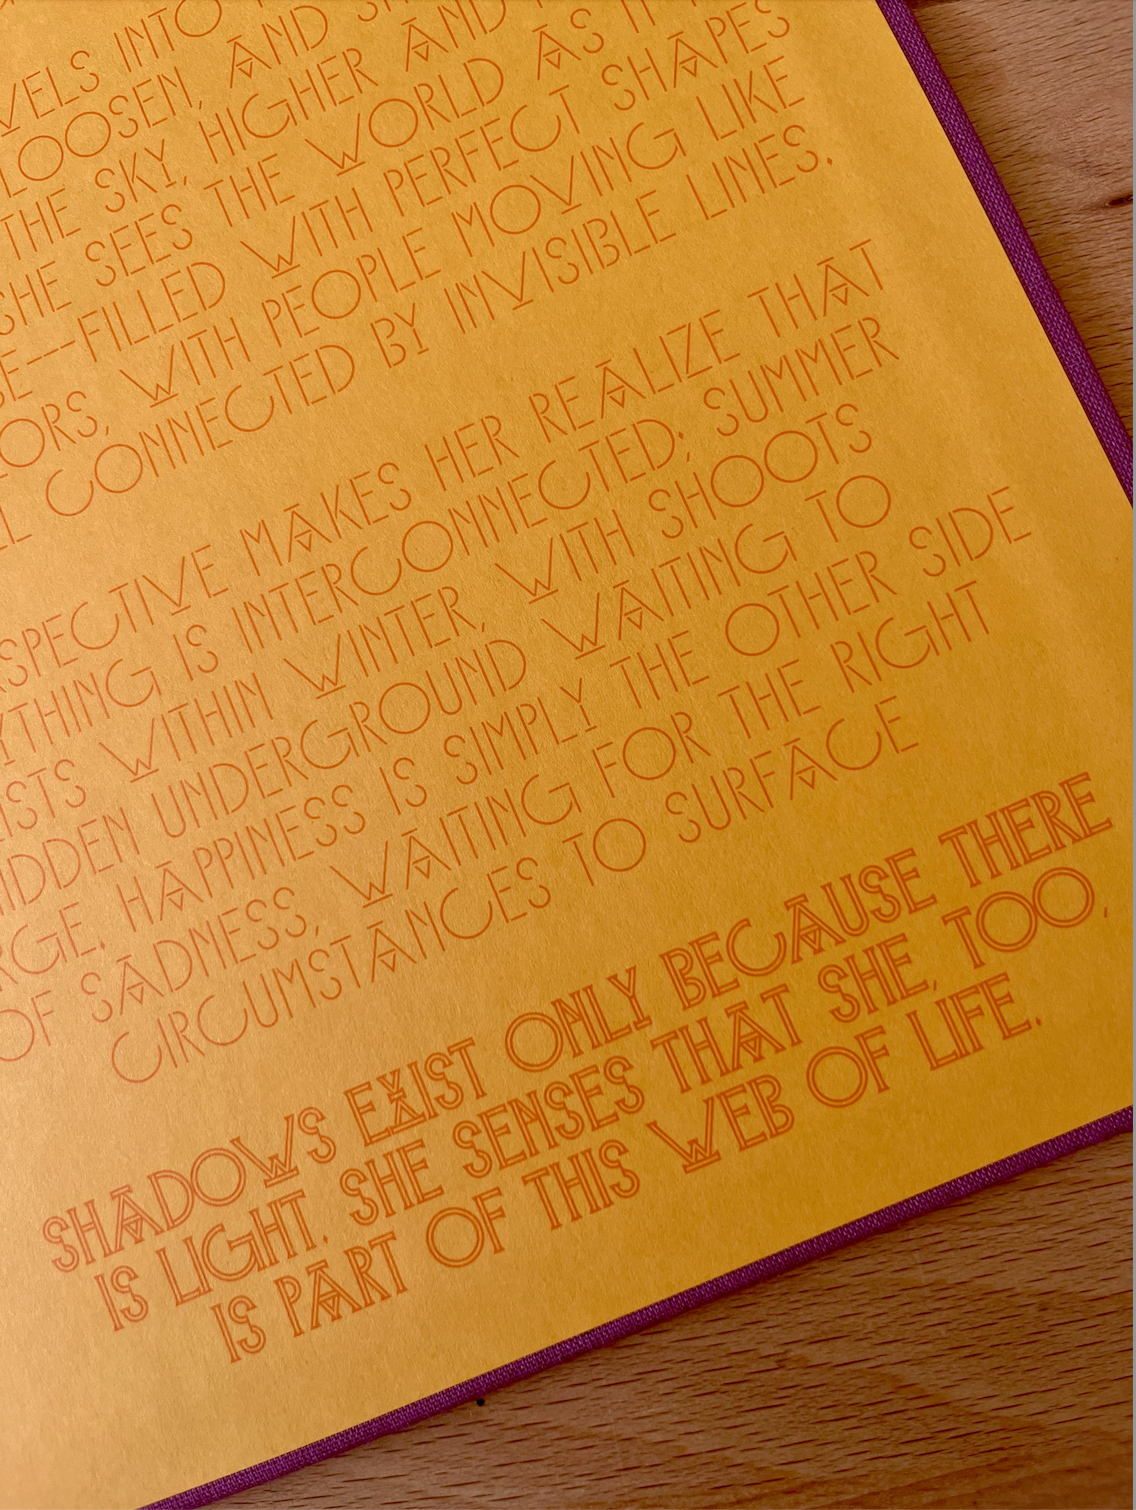 VELS INTO
LOOSEN, AND
THE SKY, HIGHER AND
SHE SEES THE WORLD AS IT
SE--FILLED WITH PERFECT SHAPES
ORS, WITH PEOPLE MOVING LIKE
LL CONNECTED BY INVISIBLE LINES.
RSPECTIVE MAKES HER REALIZE THAT
YTHING IS INTERCONNECTED; SUMMER
ISTS WITHIN WINTER, WITH SHOOTS
IDDEN UNDERGROUND WAITING TO
RGE. HAPPINESS IS SIMPLY THE OTHER SIDE
OF SADNESS, WAITING FOR THE RIGHT
CIRCUMSTANCES TO SURFACE
SHADOWS EXIST ONLY BECAUSE THERE
IS LIGHT. SHE SENSES THAT SHE, TOO,
IS PART OF THIS WEB OF LIFE.